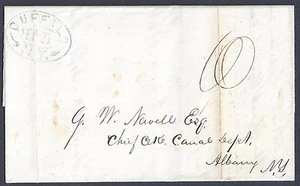 BUFFALO
N.Y.
10
G. W. Newell Esq.
Chief Clk. Canal Dept.
Albany
N.Y.